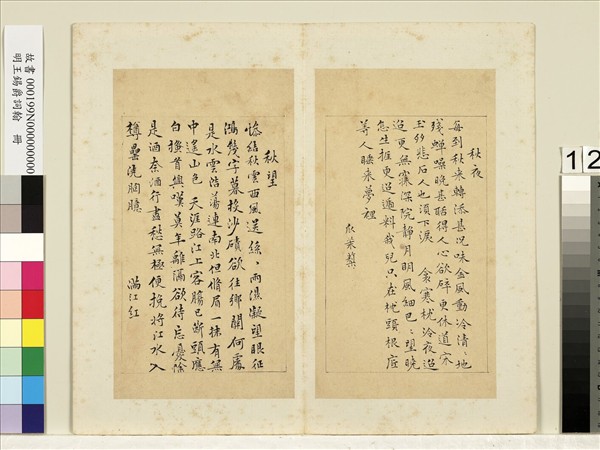 秋夜
每到秋来轉添甚况味金風動冷清、地
殘蟬噪晚甚聒得人心欲碎更休道宋
玉多悲石人也須下淚　衾寒枕冷夜迢
迢更無寐深院静月明風細巴、望曉
怎生捱更迢遞料我兒只在枕頭根底
等人睡来夢裡
秋望
慘結秋雲西風送絲、雨濕凝望眼征
鴻幾字暮投沙磧欲往鄉關何處
是水雲浩蕩連南北但脩眉一抹有無
中遥山色　天涯路江上客腸已斷頭應
白搔首興嘆暮年離隔欲待忘憂除
是酒奈酒行盡愁無極便挽将江水入
樽罍澆胸臆　　滿江紅
故書 000199N000000000
明王錫爵詞翰 冊
12